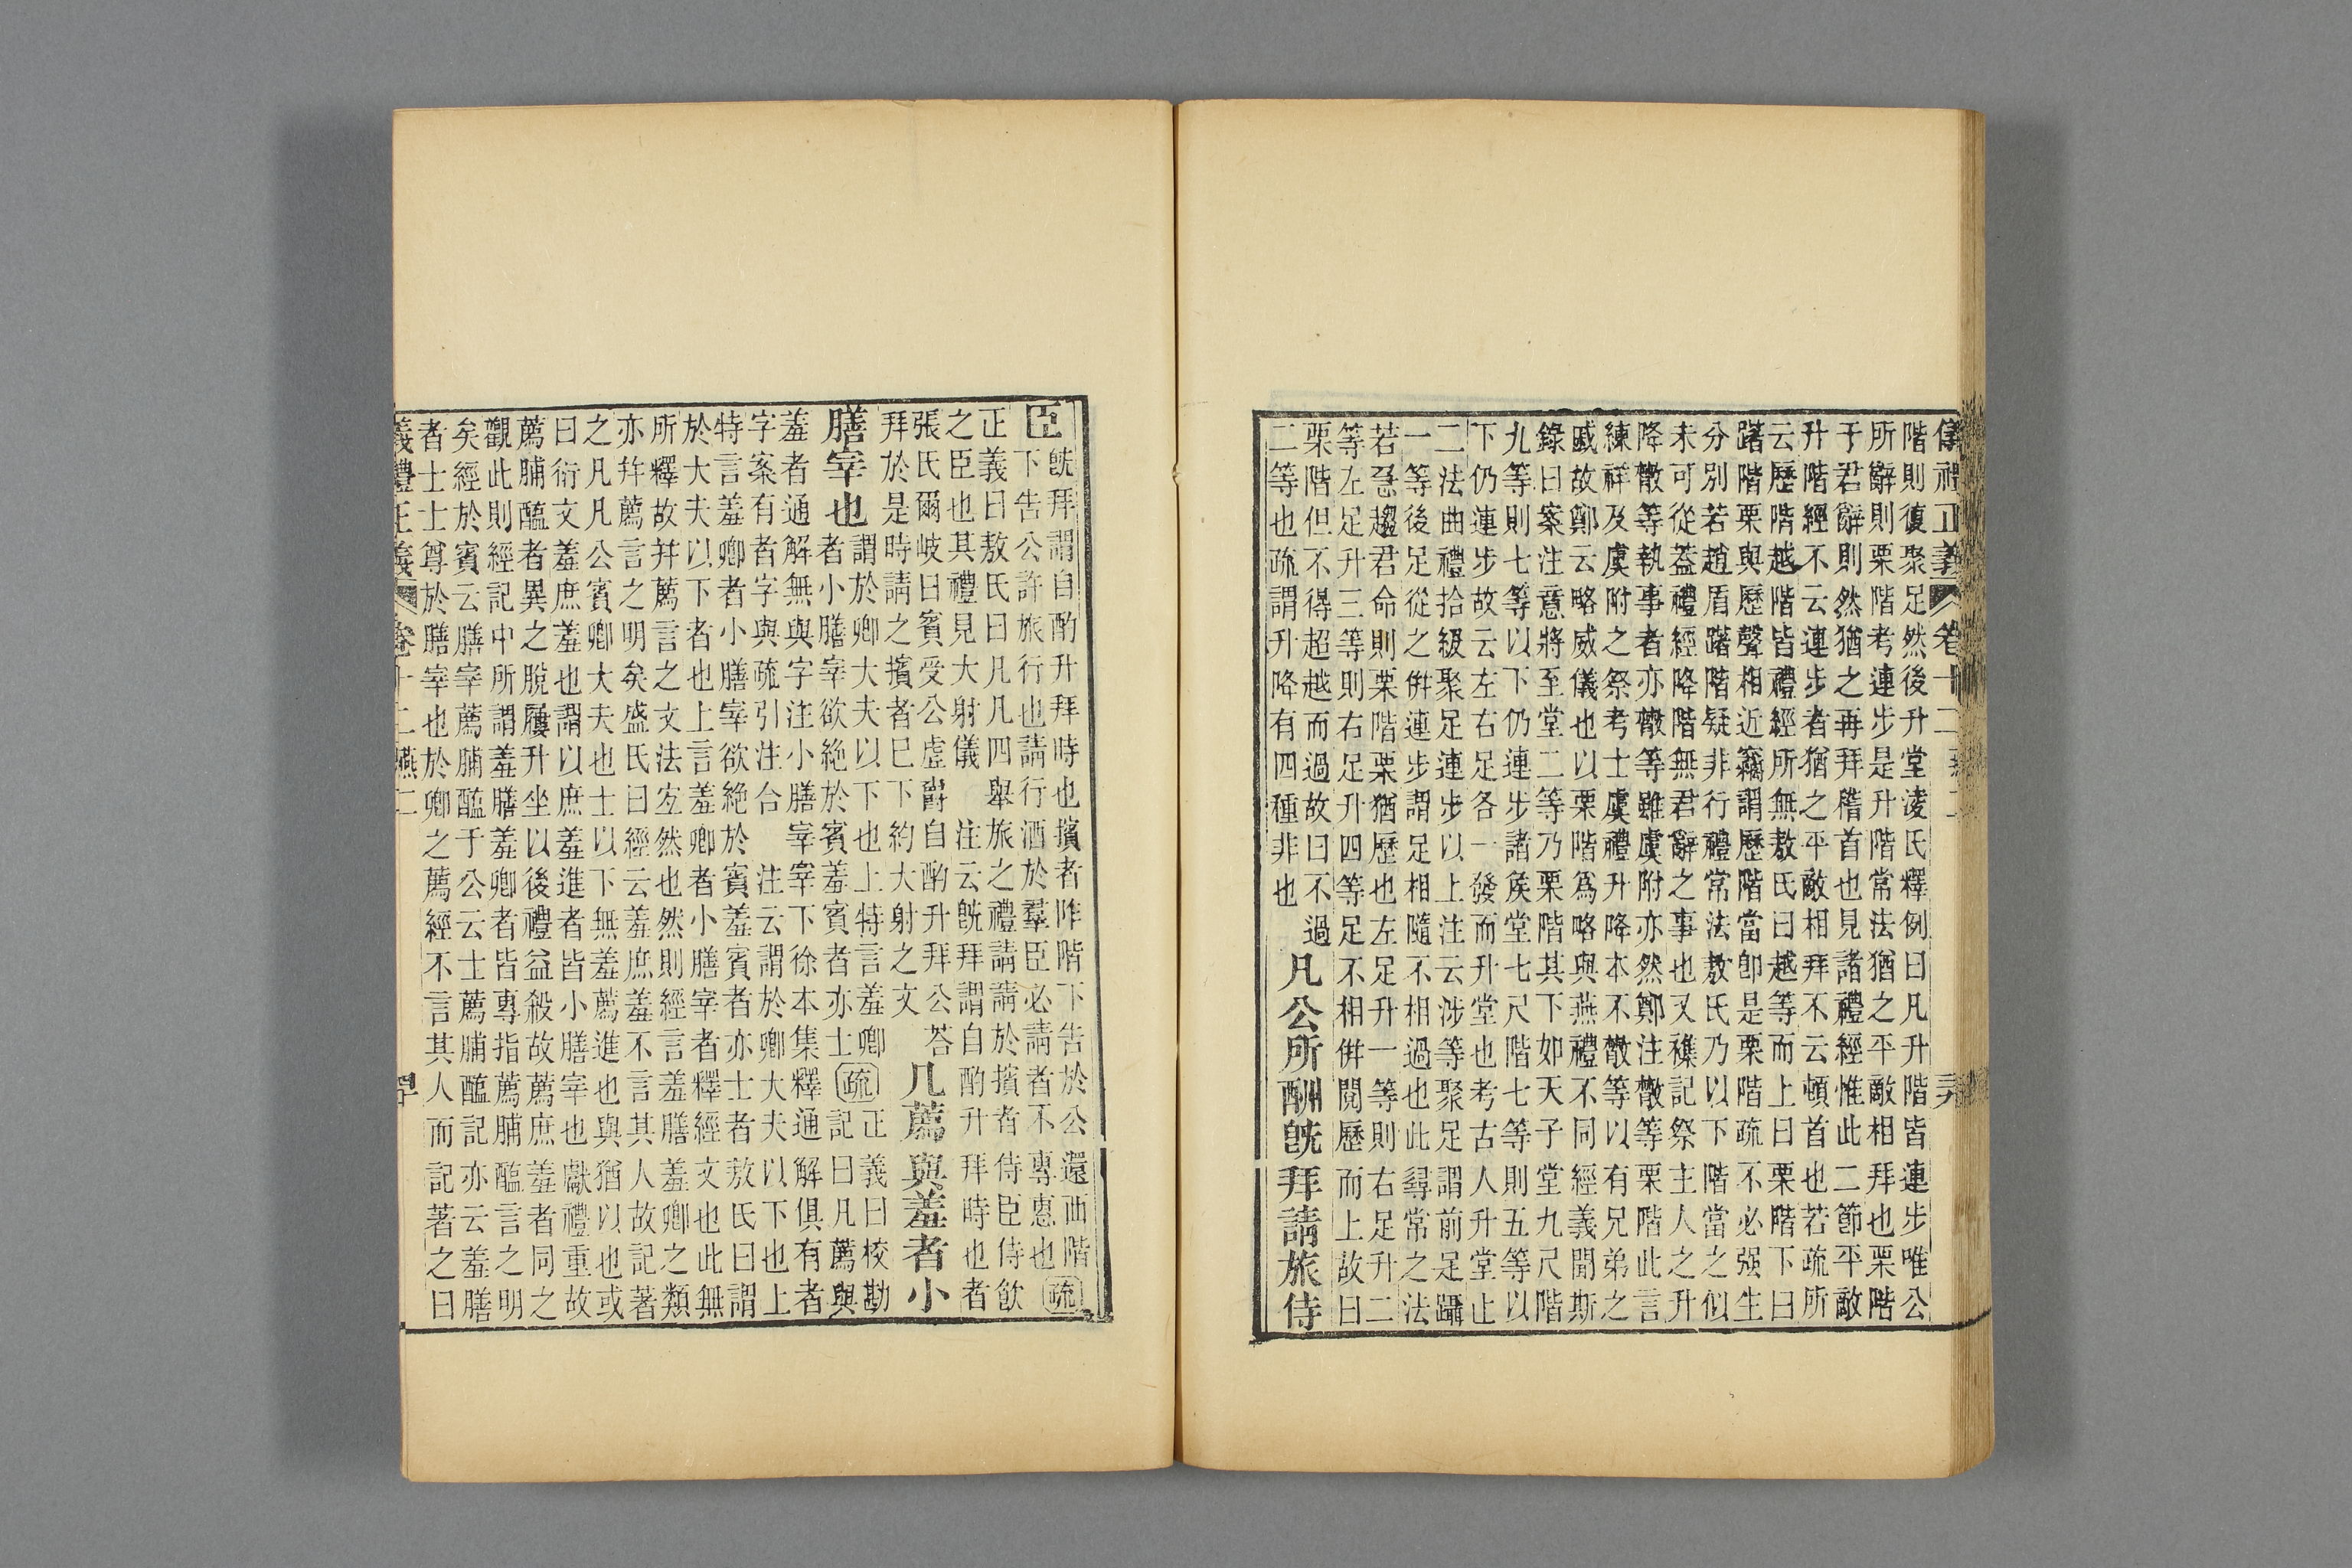 儀禮正義 卷十二 燕二
階則復聚足然後升堂淩氏釋例曰凡升階皆連步唯公
所辭則栗階考連步是升階常法猶之平敵相拜也栗階
于君辭則然猶之再拜稽首也見諸禮經惟此二節平敵
升階經不云連步者猶之平敵相拜不云頓首也若疏所
云歷階越階皆禮經所無敖氏曰越等而上曰栗階下曰
躇階栗與歷聲相近竊謂歷階當卽是栗階疏不必强生
分別若趙盾躇階疑非行禮常法敖氏乃以下階當之似
未可從葢禮經降階無君辭之事也又襍記祭主人之升
降散等執事者亦散等雖虞附亦然鄭注散等栗階此言
練祥及虞附之祭考士虞禮升降本不散等以有兄弟之
戚故鄭云略威儀也以栗階爲略與燕禮不同經義聞斯
錄曰案注意將至堂二等乃栗階其下如天子堂九尺階
九等則七等以下仍連步諸矦堂七尺階七等則五等以
下仍連步故云左右足各一發而升堂也考古人升堂止
二法曲禮拾級聚足連步以上注云涉等聚足謂前足躡
一等後足從之倂連步謂足相隨不相過也此尋常之法
若急趨君命則栗階栗猶歷也左足升一等則右足升二
等左足升三等則右足升四等足不相倂閱歷而上故曰
栗階但不得超越而過故曰不過
二等也疏謂升降有四種非也
凡公所酬旣拜請旅侍
臣
旣拜謂自酌升拜時也擯者阼階下告於公還西階
下告公許旅行也請行酒於羣臣必請者不專惠也 疏
正義曰敖氏曰凡凡四舉旅之禮請請於擯者侍臣侍飮
之臣也其禮見大射儀 注云旣拜謂自酌升拜時也者
張氏爾岐曰賓受公虛爵自酌升拜公荅
拜於是時請之擯者巳下約大射之文
凡薦與羞者小
膳宰也
謂於卿大夫以下也上特言羞卿
者小膳宰欲絕於賓羞賓者亦士
疏
正義曰校勘
記曰凡薦與
羞者通解無與字注小膳宰宰下徐本集釋通解俱有者
字案有者字與疏引注合 注云謂於卿大夫以下也上
特言羞卿者小膳宰欲絕於賓羞賓者亦士者敖氏曰謂
於大夫以下者也上言羞卿者小膳宰者釋經文也此無
所釋故幷薦言之文法宐然也然則經言羞膳羞卿之類
亦幷薦言之明矣盛氏曰經云羞庶羞不言其人故記著
之凡凡公賓卿大夫也士以下無羞薦進也與猶以也或
曰衍文羞庶羞也謂以庶羞進者皆小膳宰也獻禮重故
薦脯醢者異之脫屨升坐以後禮益殺故薦庶羞者同之
觀此則經記中所謂羞膳羞卿者皆專指薦脯醢言之明
矣經於賓云膳宰薦脯醢于公云士薦脯醢記亦云羞膳
者士士尊於膳宰也於卿之薦經不言其人而記著之曰
義禮正義 卷十二 燕二